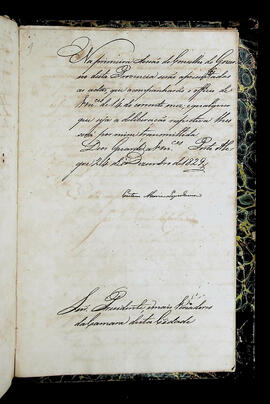 Na primeira Sessão do Conselho do Gover-
no desta Provincia serão apresentados
as actas, que acompanharão o officio de
Vmces de 14 do corrente mez, e qualquer
que seja a deliberação respectiva lhes
será por mim transmittida.
Deos Guarde a Vmces Porto Ale-
gre 24 de Dezembro de 1829
Snr. Presidente, e mais Vereadores
da Camara desta Cidade